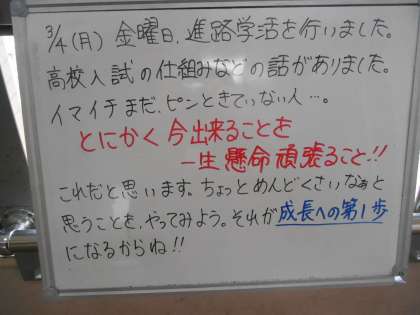 3/4(月) 金曜日、進路学活を行いました。
高校入試の仕組みなどの話がありました。
イマイチまだ、ピンときていない人…。
とにかく今出来ることを
一生懸命頑張ること!!
これだと思います。ちょっとめんどくさいなぁと
思うことを、やってみよう。それが成長への第1歩
になるからね!!